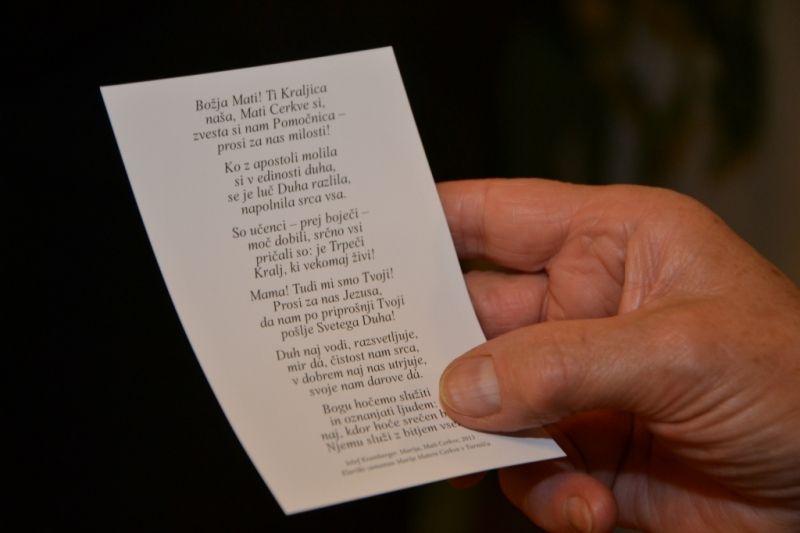 Božja Mati! Ti Kraljica
naša, Mati Cerkve si,
zvesta si nam Pomočnica –
prosi za nas milosti!
Ko z apostoli molila
si v edinosti duha,
se je luč Duha razlila,
napolnila srca vsa.
So učenci – prej boječi –
moč dobili, srčno vsi
pričali so: je Trpeči
Kralj, ki vekomaj živi!
Mama! Tudi mi smo Tvoji!
Prosi za nas Jezusa,
da nam po priprošnji Tvoji
pošlje Svetega Duha!
Duh naj vodi, razsvetljuje,
mir dá, čistost nam srca,
v dobrem naj nas utrjuje,
svoje nam darove dá.
Bogu hočemo služiti
in oznanjati ljudem:
naj, kdor hoče srečen
Njemu služi z bitjem
Jožef Kramberger, Marija, Mati Cerkve, 2013
Marije Matere Cerkve v